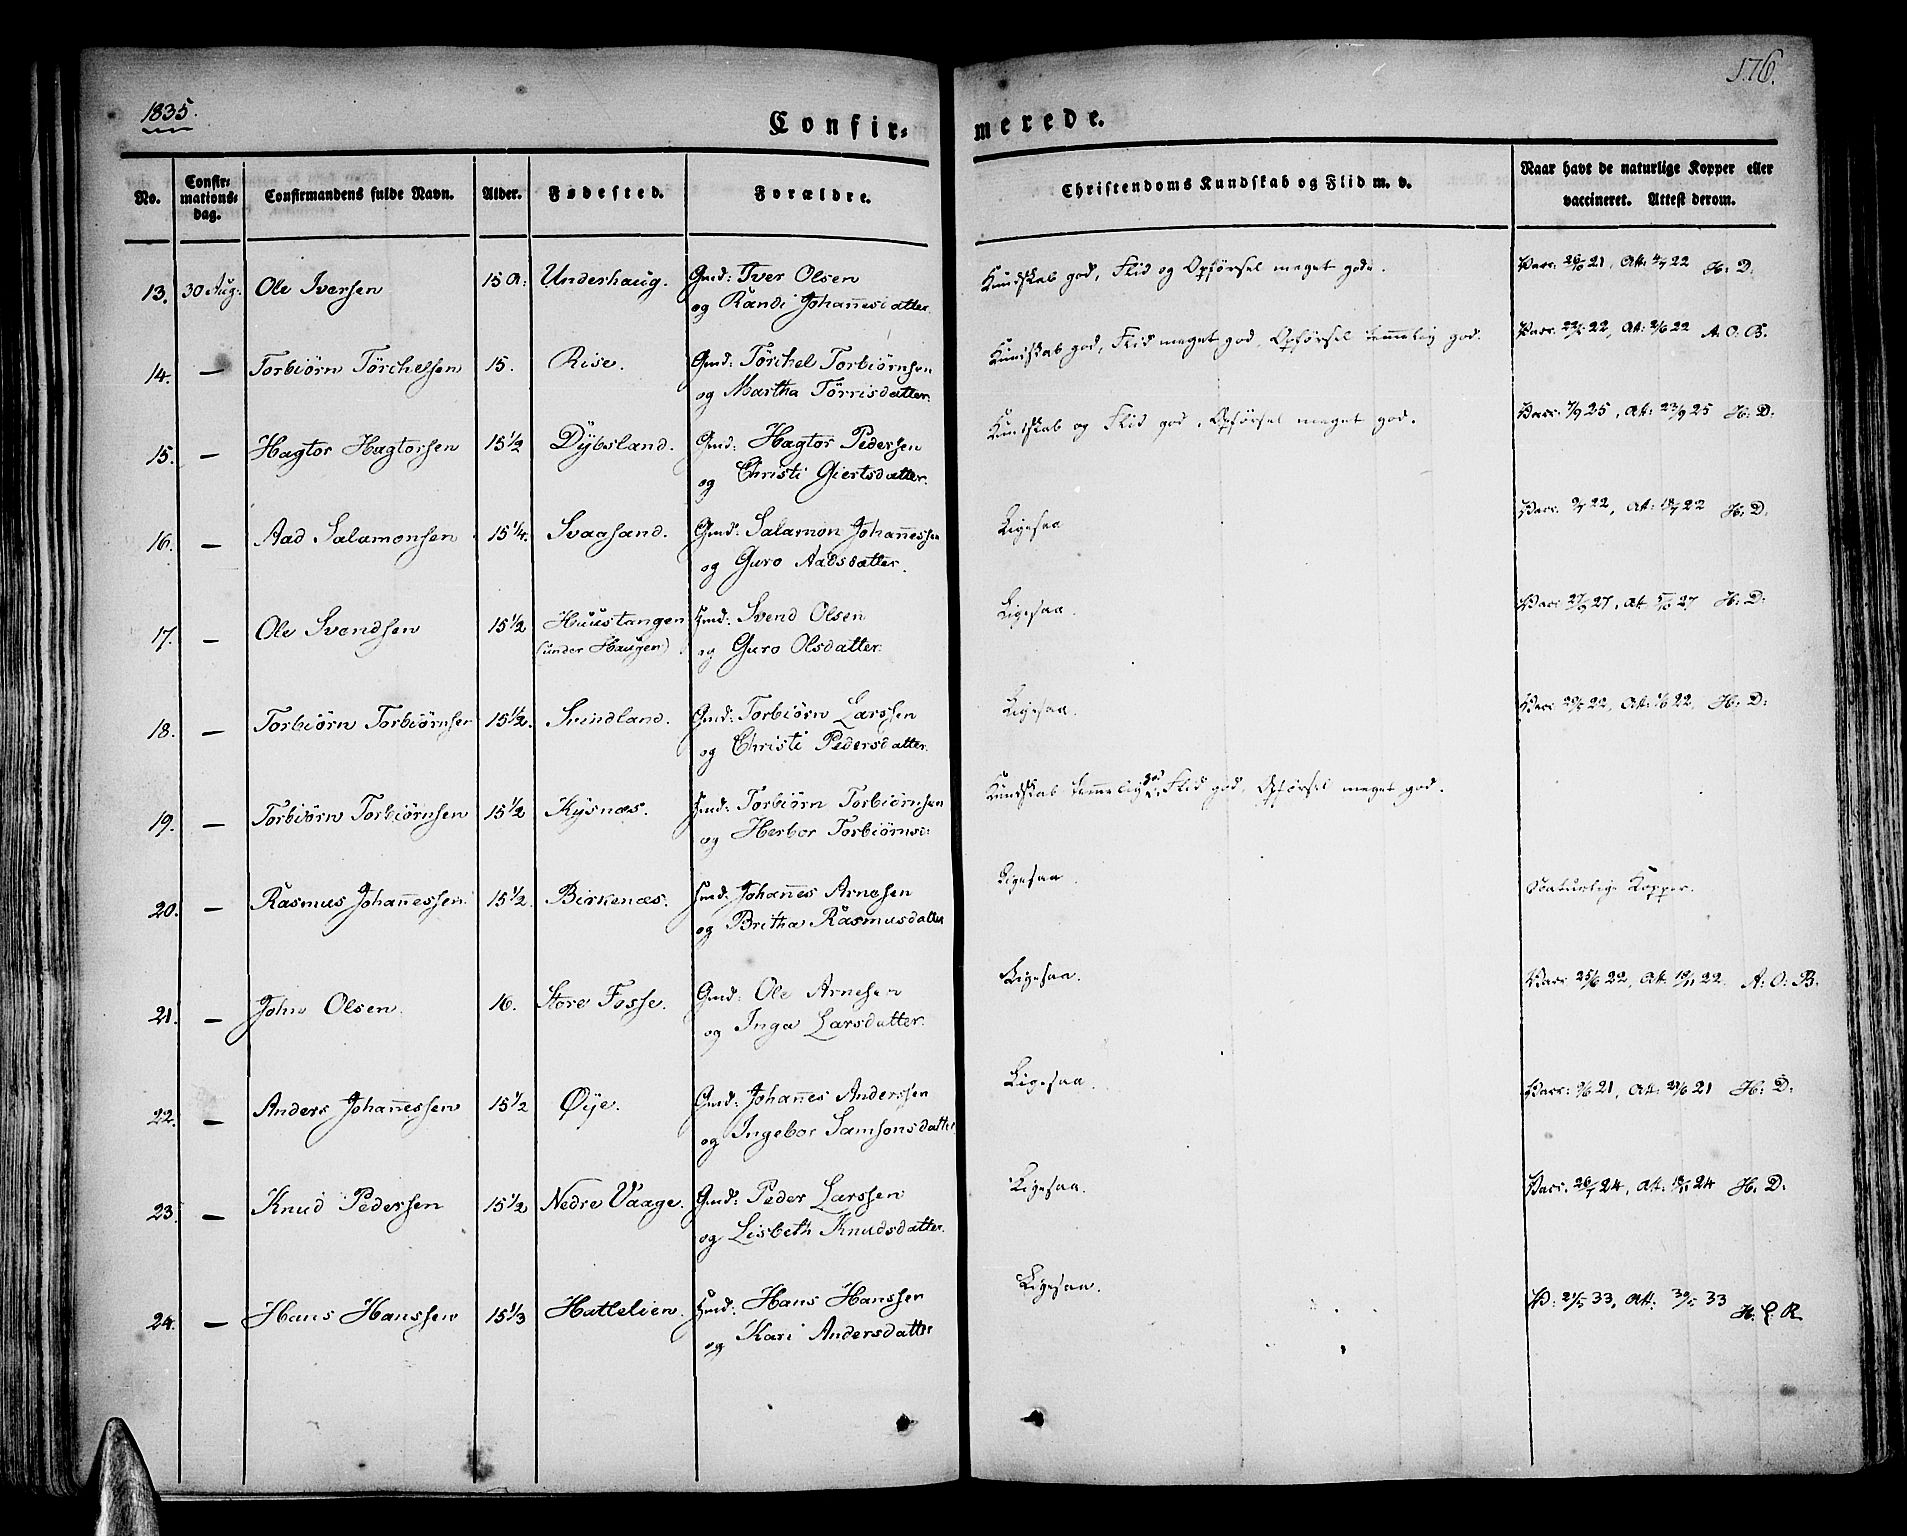 1835.
176.
Confir= merede.
No.
Confir=
mations=
dag.
Confirmandens fulde Navn.
Alder.
Fødested.
Forældre.
Christendoms Kundskab og Flid m. v.
Naar havt de naturlige Kopper eller
vaccineret. Attest derom.
13. 30 Aug. Ole Iversen 15 A: Underhaug. Gmd: Iver Olsen
og Randi Johannesdatter
Kundskab god, Flid og Opførsel meget gode. Vacc: 21, Att: 4/7 22 H: D:
14. — Torbiørn Törchelsen 15. Rise. Gmd: Törchel Torbiørnsen
og Martha Törrisdatter.
Kundskab god, Flid meget god, Opførsel temmelig god. Vacc: 22, Att: 22 A. O. B.
15. — Hagtor Hagtorsen 15 1/2 Dÿbsland. Gmd: Hagtor Pedersen
og Christi Giertsdatter.
Kundskab og Flid god, Opførsel meget god. Vacc: 7/9 25, Att: 23/9 25 H: D:
16. — Aad Salamonsen 15 1/4. Svaasand. Gmd: Salamon Johannessen
og Guro Aadsdatter.
Ligesaa Vacc: 22, Att: 22 H: D:
17. — Ole Svendsen 15 1/2 Huustangen
(under Haugen)
Hmd: Svend Olsen
og Guro Olsdatter.
Ligesaa. Vacc: 27, Att: 27 H: D:
18. — Torbiørn Torbiørnsen 15 1/2. Svindland. Gmd: Torbiørn Larssen
og Christi Pedersdatter.
Ligesaa. Vacc: 22, Att: 22, H: D:
19. — Torbiörn Torbiörnsen 15 1/2 Kysnæs. Hmd: Torbiörn Torbiörnsen
og Herbor Torbiörnsd:
Kundskab temmelig god, Flid god, Opførsel meget god.
20. — Rasmus Johannessen 15 1/2 Birkenæs. Hmd: Johannes Arnesen
og Britha Rasmusdatter
Ligesaa. Naturlige Kopper.
21. — John Olsen. 16. Store Fosse. Gmd: Ole Arnesen
og Inga Larsdatter.
Ligesaa. Vacc: 25/6 22, Att: 22. A: O: B.
22. — Anders Johannessen 15 1/2 Øye. Gmd: Johannes Anderssen
og Ingebor Samsonsdatter
Ligesaa. Vacc: 21, Att: 21 H: D:
23. — Knud Pederssen 15 1/2 Nedre Vaage. Gmd: Peder Larssen
og Lisbeth Knudsdatter.
Ligesaa. Vacc: 24, Att: 24 H: D:
24. — Hans Hanssen 15 1/3 Hattelien. Hmd: Hans Hanssen
og Kari Andersdatter
Ligesaa. V: 21/5 33, Att: 30/5 33